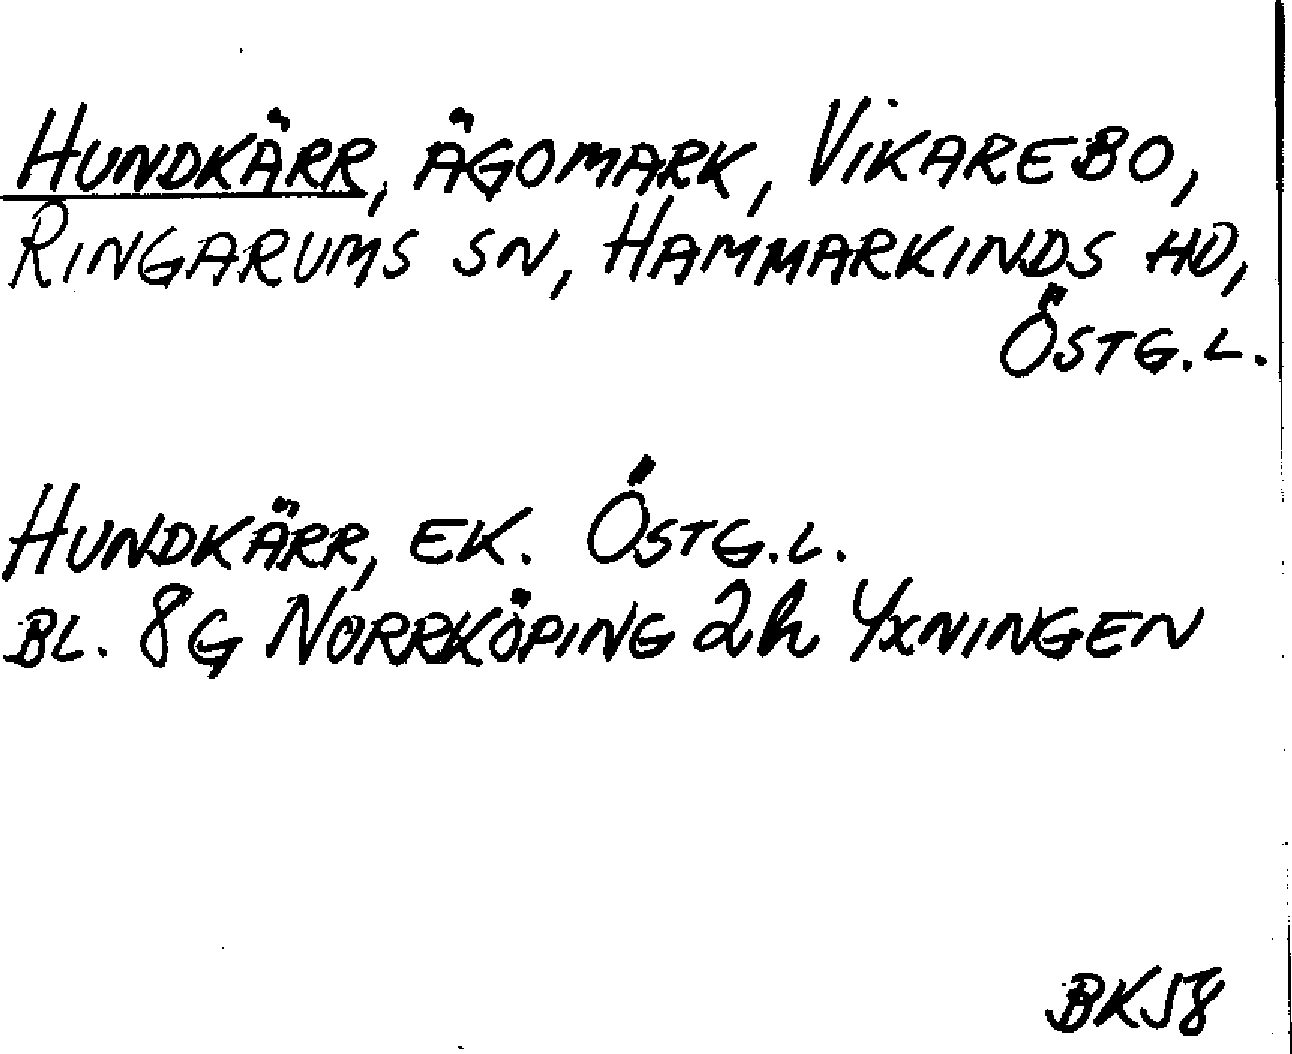 HUNDKÄRR, ÄGOMARK, VIKAREBO,
RINGARUMS SN, HAMMARKINDS HD,
ÖSTG.L.
HUNDKÄRR, EK. ÖSTG.L.
BL. 8G NORRKÖPING 2h YXNINGEN
BK58